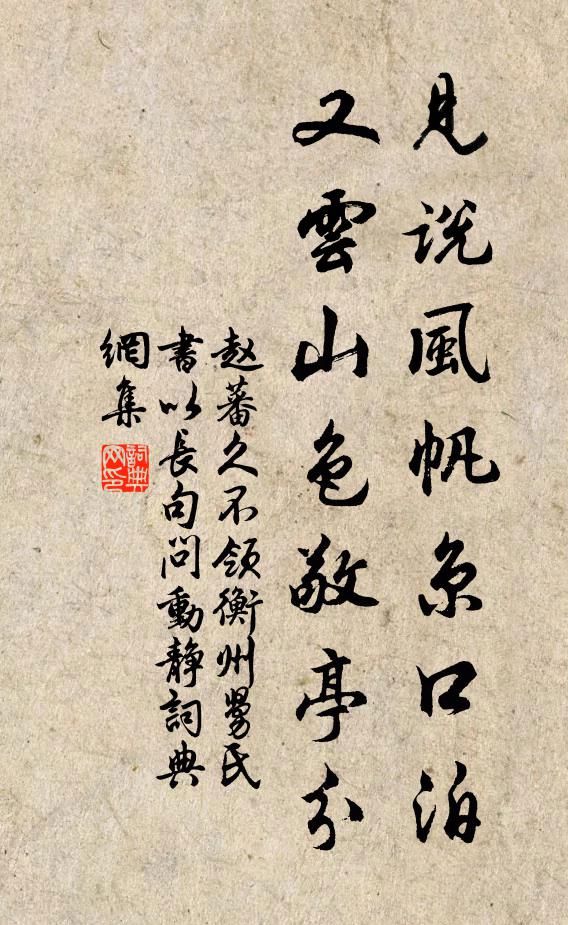 見説風帆京口泊
又雲山色敬亭分
赵蕃久不領衡州舅氏
書以長句問動靜詞典
網集
詞典網印